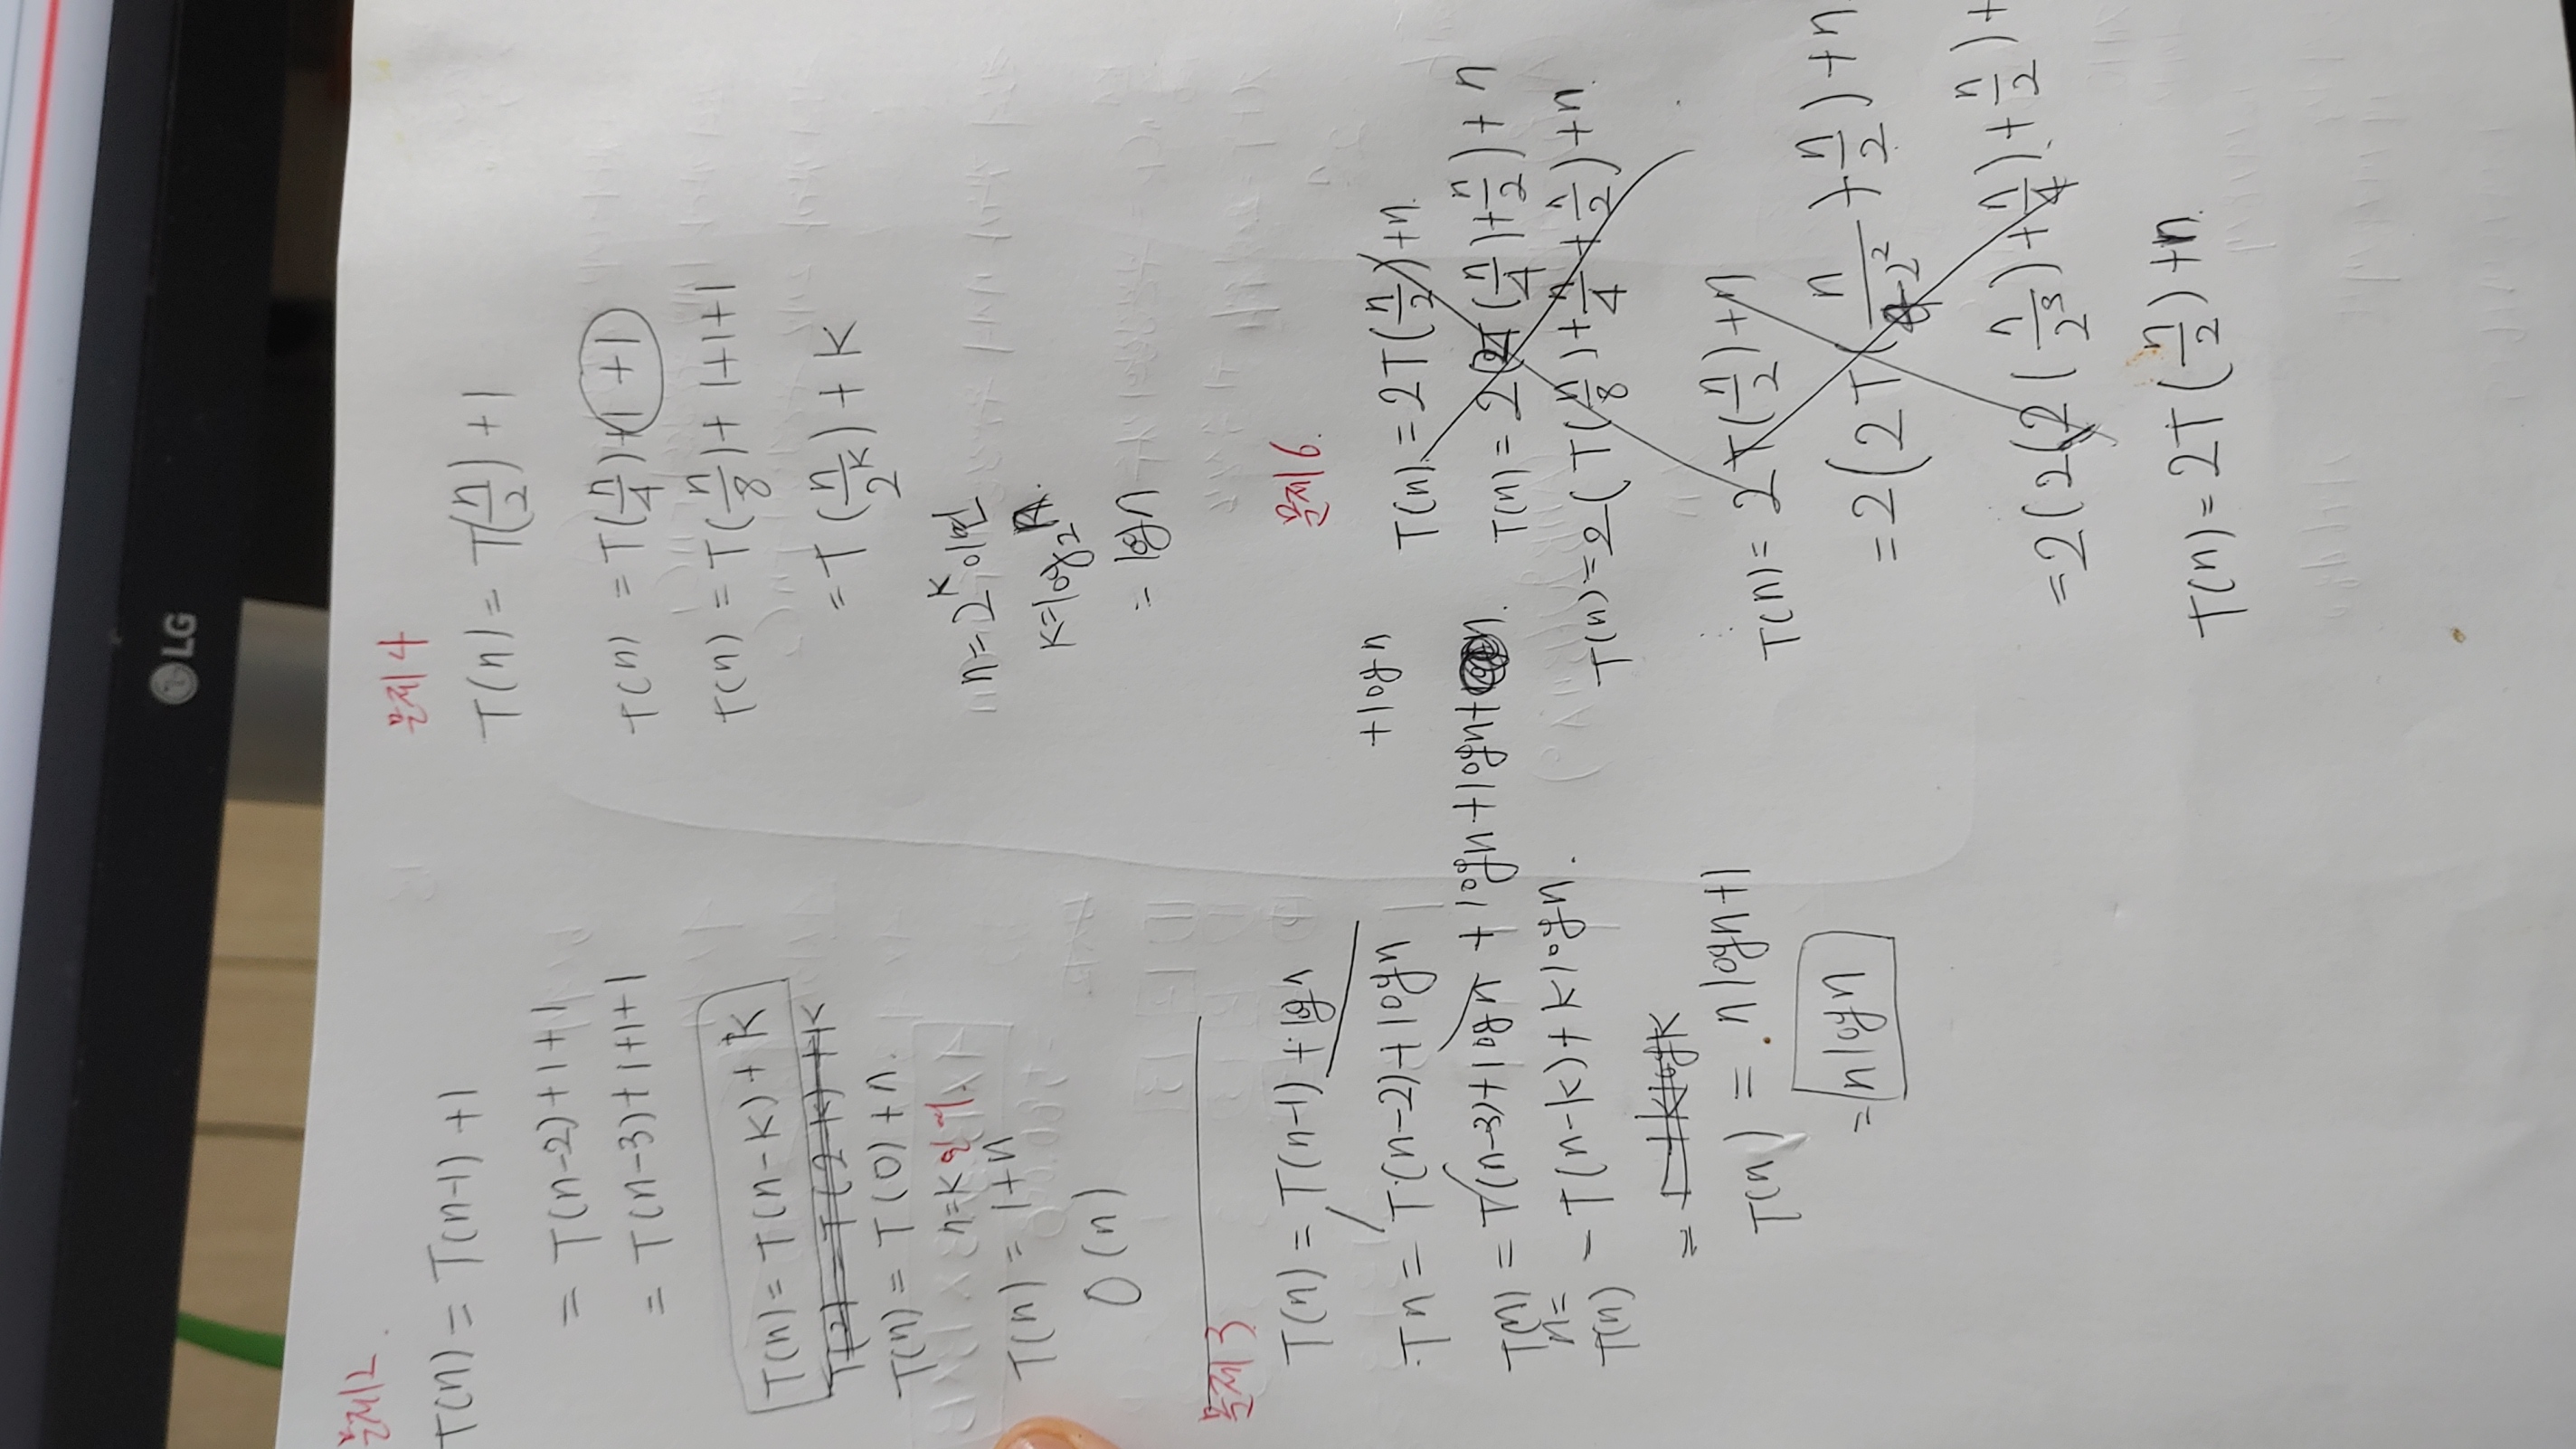 LG
문제2.
T(n) = T(n-1) +1
= T(n-2)+1+1
= T(n-3)+1+1+1
T(n) = T(n-k) + k
T(2) = T(2-k) + k
T(n) = T(0)+n.
n=k 일 때.
T(n) = 1+n
O(n)
문제 3
T(n) = T(n-1) + log n
Tn = T(n-2)+logn
+logn
T(n) = T(n-3)+logn + logn+logn+
n=
T(n) = T(n-k)+klogn.
= 1+klogk
T(n) = nlogn+1
= nlogn
문제 4
T(n) = T(n/2) + 1
T(n) = T(n/4)+1 +1
T(n) = T(n/8)+ 1+1+1
= T(n/2^k) + k
n=2^k 이면
k=log₂n.
= logn
문제 6.
T(n) = 2T(n/2)+n.
T(n) = 2(2T(n/4)+n/2)+n
T(n) = 2(T(n/8)+n/4+n/2)+n.
⋮
T(n) = 2T(n/2)+n
= 2(2T(n/2²)+n/2)+n
= 2(2(2(n/2³)+n/4)+n/2)+
T(n) = 2T(n/2)+n.